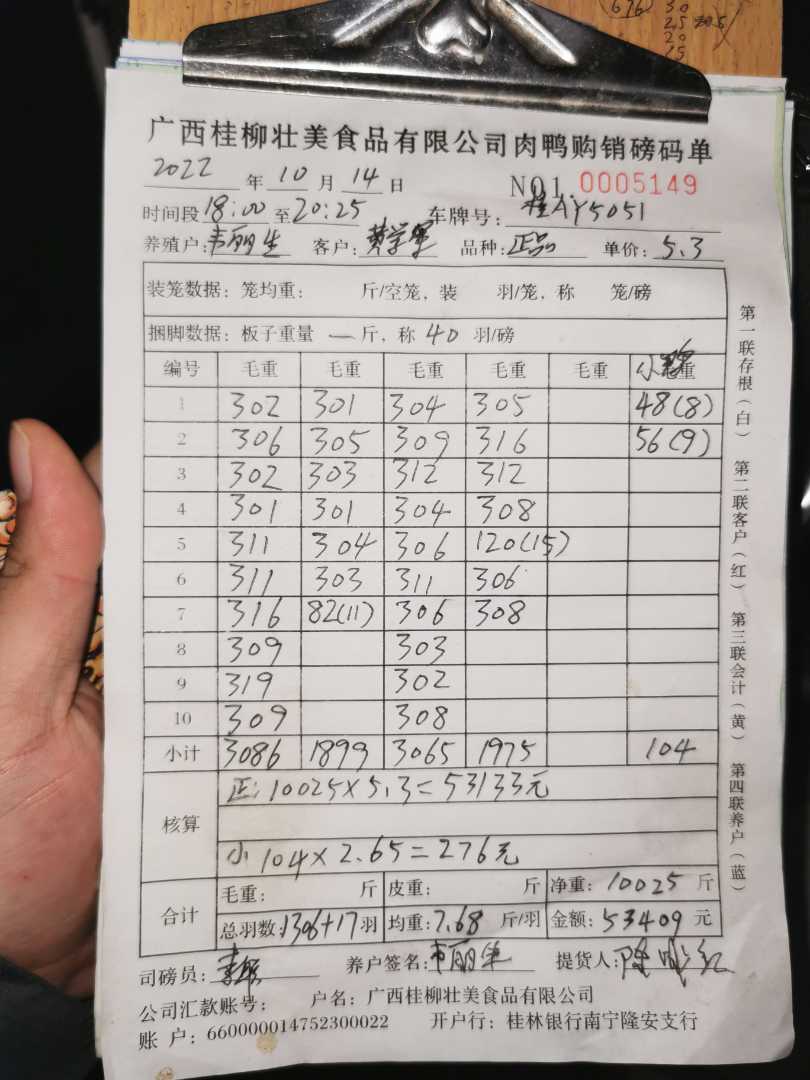 广西桂柳壮美食品有限公司肉鸭购销磅码单
2022 年 10 月 14 日 NO1. 0005149
时间段18:00至20:25 车牌号: 桂AY5051
养殖户:韦丽生 客户: 黄学军 品种:正品 单价: 5.3
装笼数据: 笼均重: 斤/空笼, 装 羽/笼, 称 笼/磅
捆脚数据: 板子重量 一 斤, 称 40 羽/磅
编号 毛重 毛重 毛重 毛重 毛重 小 毛重
1 302 301 304 305 48(8)
2 306 305 309 316 56(9)
3 302 303 312 312
4 301 301 304 308
5 311 304 306 120(15)
6 311 303 311 306
7 316 82(11) 306 308
8 309 303
9 319 302
10 309 308
小计 3086 1899 3065 1975 104
核算
正: 10025×5.3=53133元
小 104×2.65=276元
合计
毛重: 斤 皮重: 斤 净重: 10025 斤
总羽数:1306+17羽 均重:7.68 斤/羽 金额: 53409 元
司磅员: 养户签名: 韦丽生 提货人:
公司汇款账号: 户名: 广西桂柳壮美食品有限公司
账 户: 660000014752300022 开户行: 桂林银行南宁隆安支行
第一联存根(白) 第二联客户(红) 第三联会计(黄) 第四联养户(蓝)